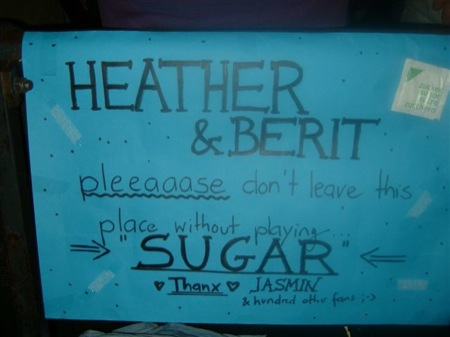 HEATHER
& BERIT
pleeaaase don't leave this
place without playing...
"SUGAR"
Thanx JASMIN
& hundred other fans ;-)